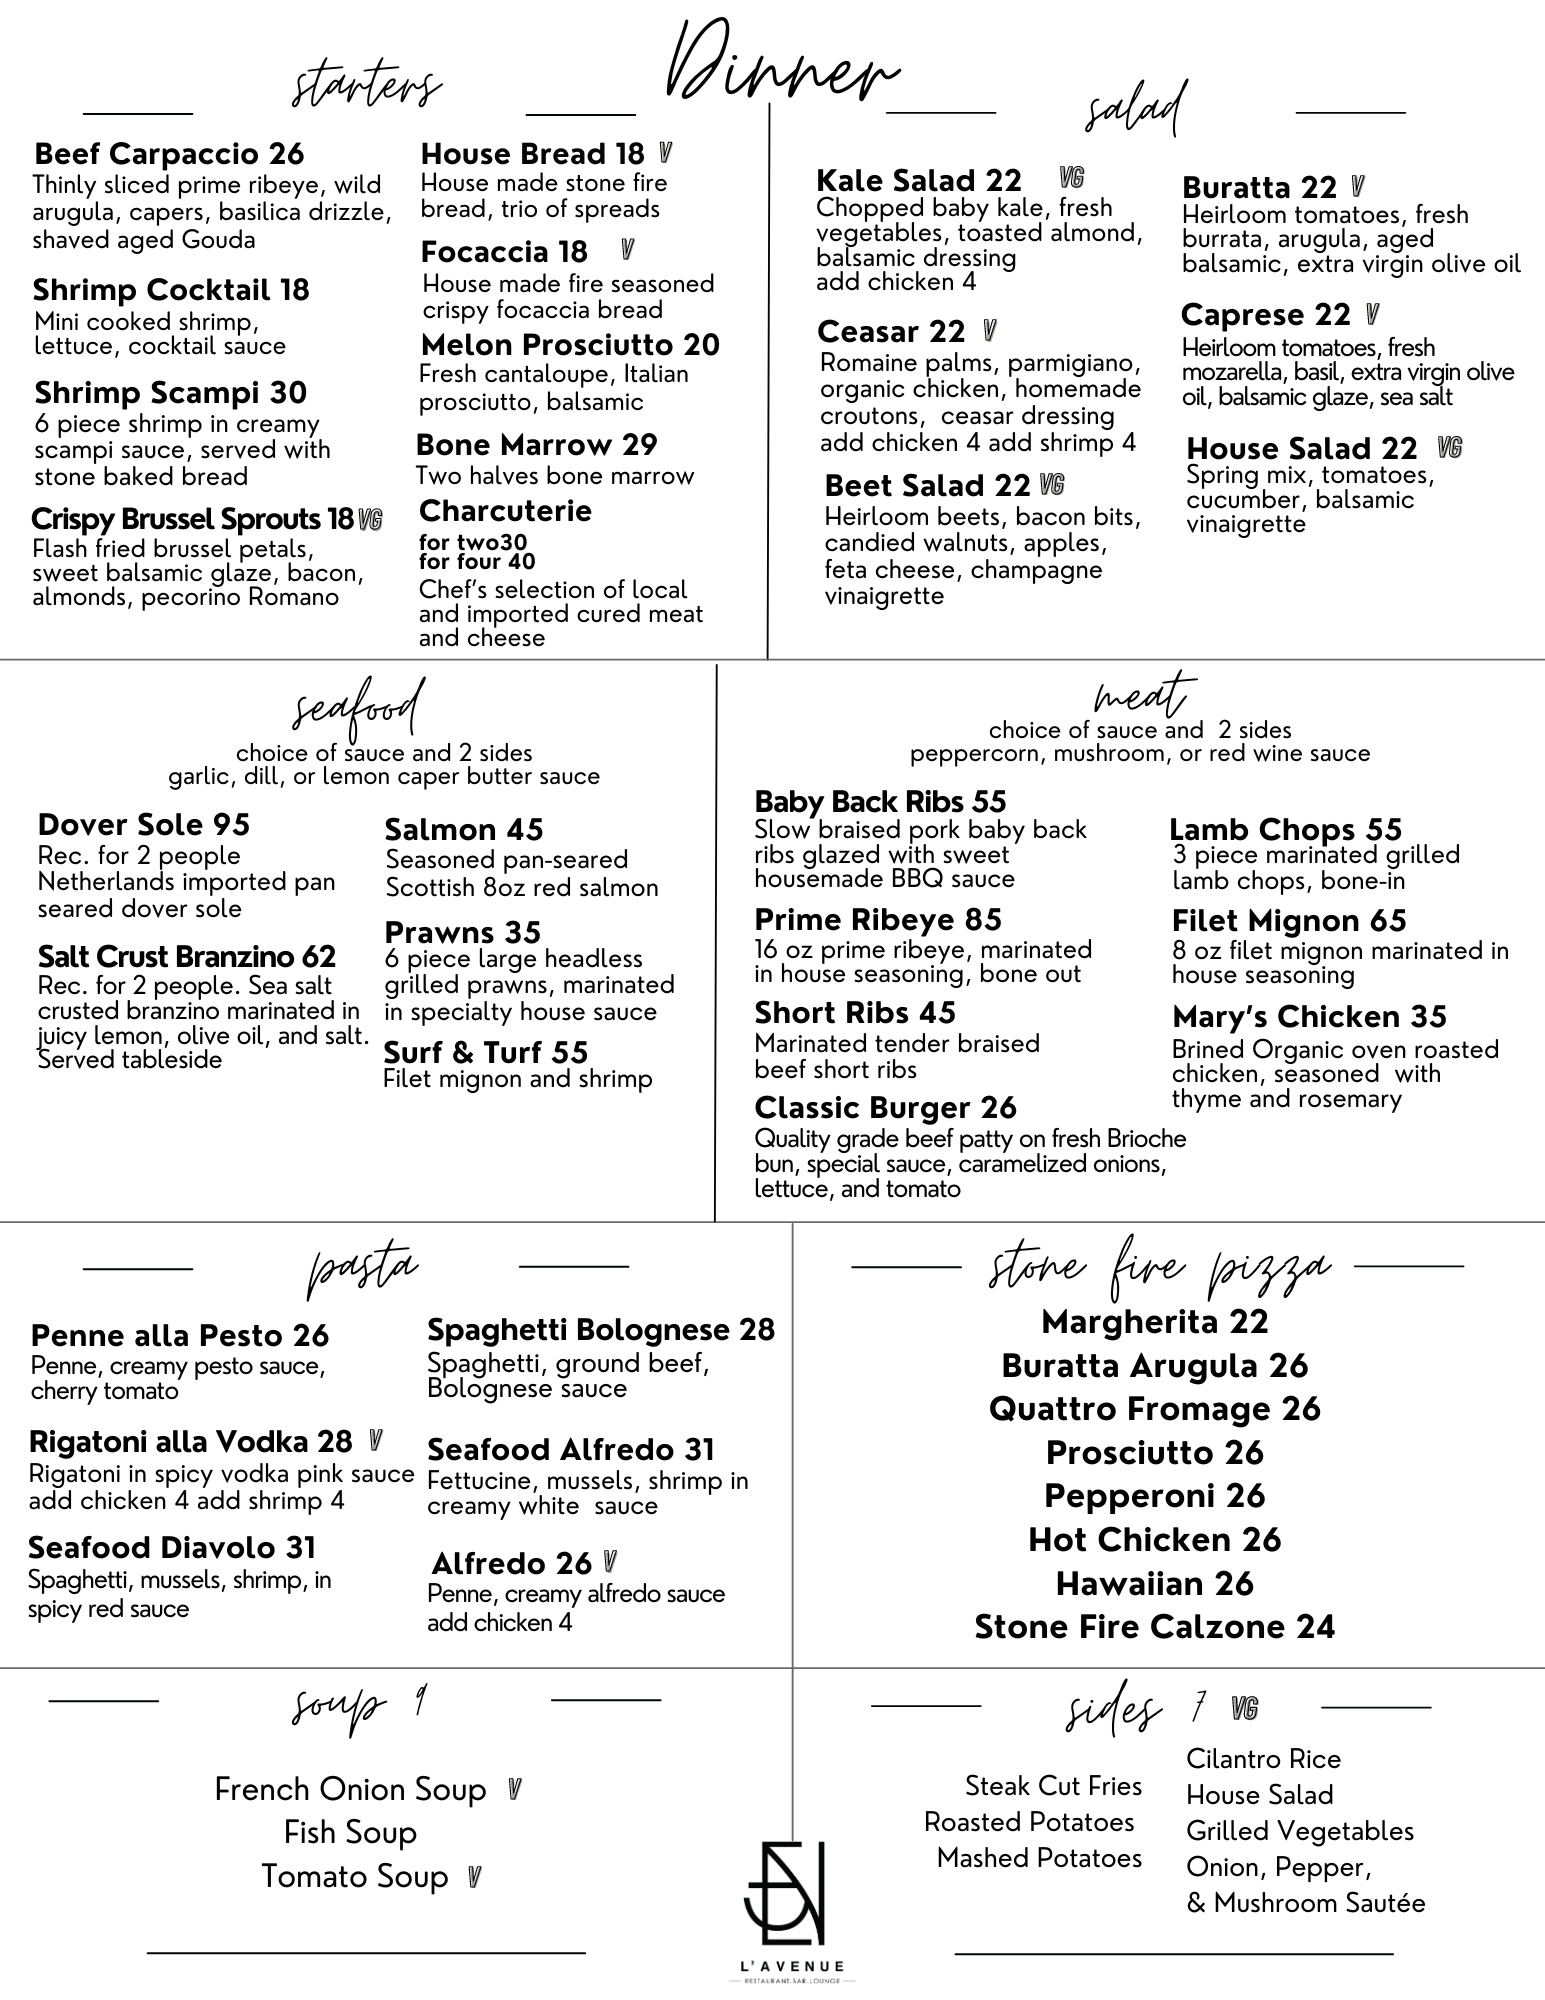 Dinner
starters
Beef Carpaccio 26
Thinly sliced prime ribeye, wild
arugula, capers, basilica drizzle,
shaved aged Gouda
Shrimp Cocktail 18
Mini cooked shrimp,
lettuce, cocktail sauce
Shrimp Scampi 30
6 piece shrimp in creamy
scampi sauce, served with
stone baked bread
Crispy Brussel Sprouts 18 VG
Flash fried brussel petals,
sweet balsamic glaze, bacon,
almonds, pecorino Romano
House Bread 18 V
House made stone fire
bread, trio of spreads
Focaccia 18 V
House made fire seasoned
crispy focaccia bread
Melon Prosciutto 20
Fresh cantaloupe, Italian
prosciutto, balsamic
Bone Marrow 29
Two halves bone marrow
Charcuterie
for two30
for four 40
Chef's selection of local
and imported cured meat
and cheese
salad
Kale Salad 22 VG
Chopped baby kale, fresh
vegetables, toasted almond,
balsamic dressing
add chicken 4
Ceasar 22 V
Romaine palms, parmigiano,
organic chicken, homemade
croutons, ceasar dressing
add chicken 4 add shrimp 4
Beet Salad 22 VG
Heirloom beets, bacon bits,
candied walnuts, apples,
feta cheese, champagne
vinaigrette
Buratta 22 V
Heirloom tomatoes, fresh
burrata, arugula, aged
balsamic, extra virgin olive oil
Caprese 22 V
Heirloom tomatoes, fresh
mozarella, basil, extra virgin olive
oil, balsamic glaze, sea salt
House Salad 22 VG
Spring mix, tomatoes,
cucumber, balsamic
vinaigrette
seafood
choice of sauce and 2 sides
garlic, dill, or lemon caper butter sauce
Dover Sole 95
Rec. for 2 people
Netherlands imported pan
seared dover sole
Salt Crust Branzino 62
Rec. for 2 people. Sea salt
crusted branzino marinated in
juicy lemon, olive oil, and salt.
Served tableside
Salmon 45
Seasoned pan-seared
Scottish 8oz red salmon
Prawns 35
6 piece large headless
grilled prawns, marinated
in specialty house sauce
Surf & Turf 55
Filet mignon and shrimp
meat
choice of sauce and 2 sides
peppercorn, mushroom, or red wine sauce
Baby Back Ribs 55
Slow braised pork baby back
ribs glazed with sweet
housemade BBQ sauce
Prime Ribeye 85
16 oz prime ribeye, marinated
in house seasoning, bone out
Short Ribs 45
Marinated tender braised
beef short ribs
Classic Burger 26
Quality grade beef patty on fresh Brioche
bun, special sauce, caramelized onions,
lettuce, and tomato
Lamb Chops 55
3 piece marinated grilled
lamb chops, bone-in
Filet Mignon 65
8 oz filet mignon marinated in
house seasoning
Mary's Chicken 35
Brined Organic oven roasted
chicken, seasoned with
thyme and rosemary
pasta
Penne alla Pesto 26
Penne, creamy pesto sauce,
cherry tomato
Rigatoni alla Vodka 28 V
Rigatoni in spicy vodka pink sauce
add chicken 4 add shrimp 4
Seafood Diavolo 31
Spaghetti, mussels, shrimp, in
spicy red sauce
Spaghetti Bolognese 28
Spaghetti, ground beef,
Bolognese sauce
Seafood Alfredo 31
Fettucine, mussels, shrimp in
creamy white sauce
Alfredo 26 V
Penne, creamy alfredo sauce
add chicken 4
stone fire pizza
Margherita 22
Buratta Arugula 26
Quattro Fromage 26
Prosciutto 26
Pepperoni 26
Hot Chicken 26
Hawaiian 26
Stone Fire Calzone 24
soup 9
French Onion Soup V
Fish Soup
Tomato Soup V
sides 7 VG
Steak Cut Fries
Roasted Potatoes
Mashed Potatoes
Cilantro Rice
House Salad
Grilled Vegetables
Onion, Pepper,
& Mushroom Sautée
L'AVENUE
RESTAURANT.BAR.LOUNGE